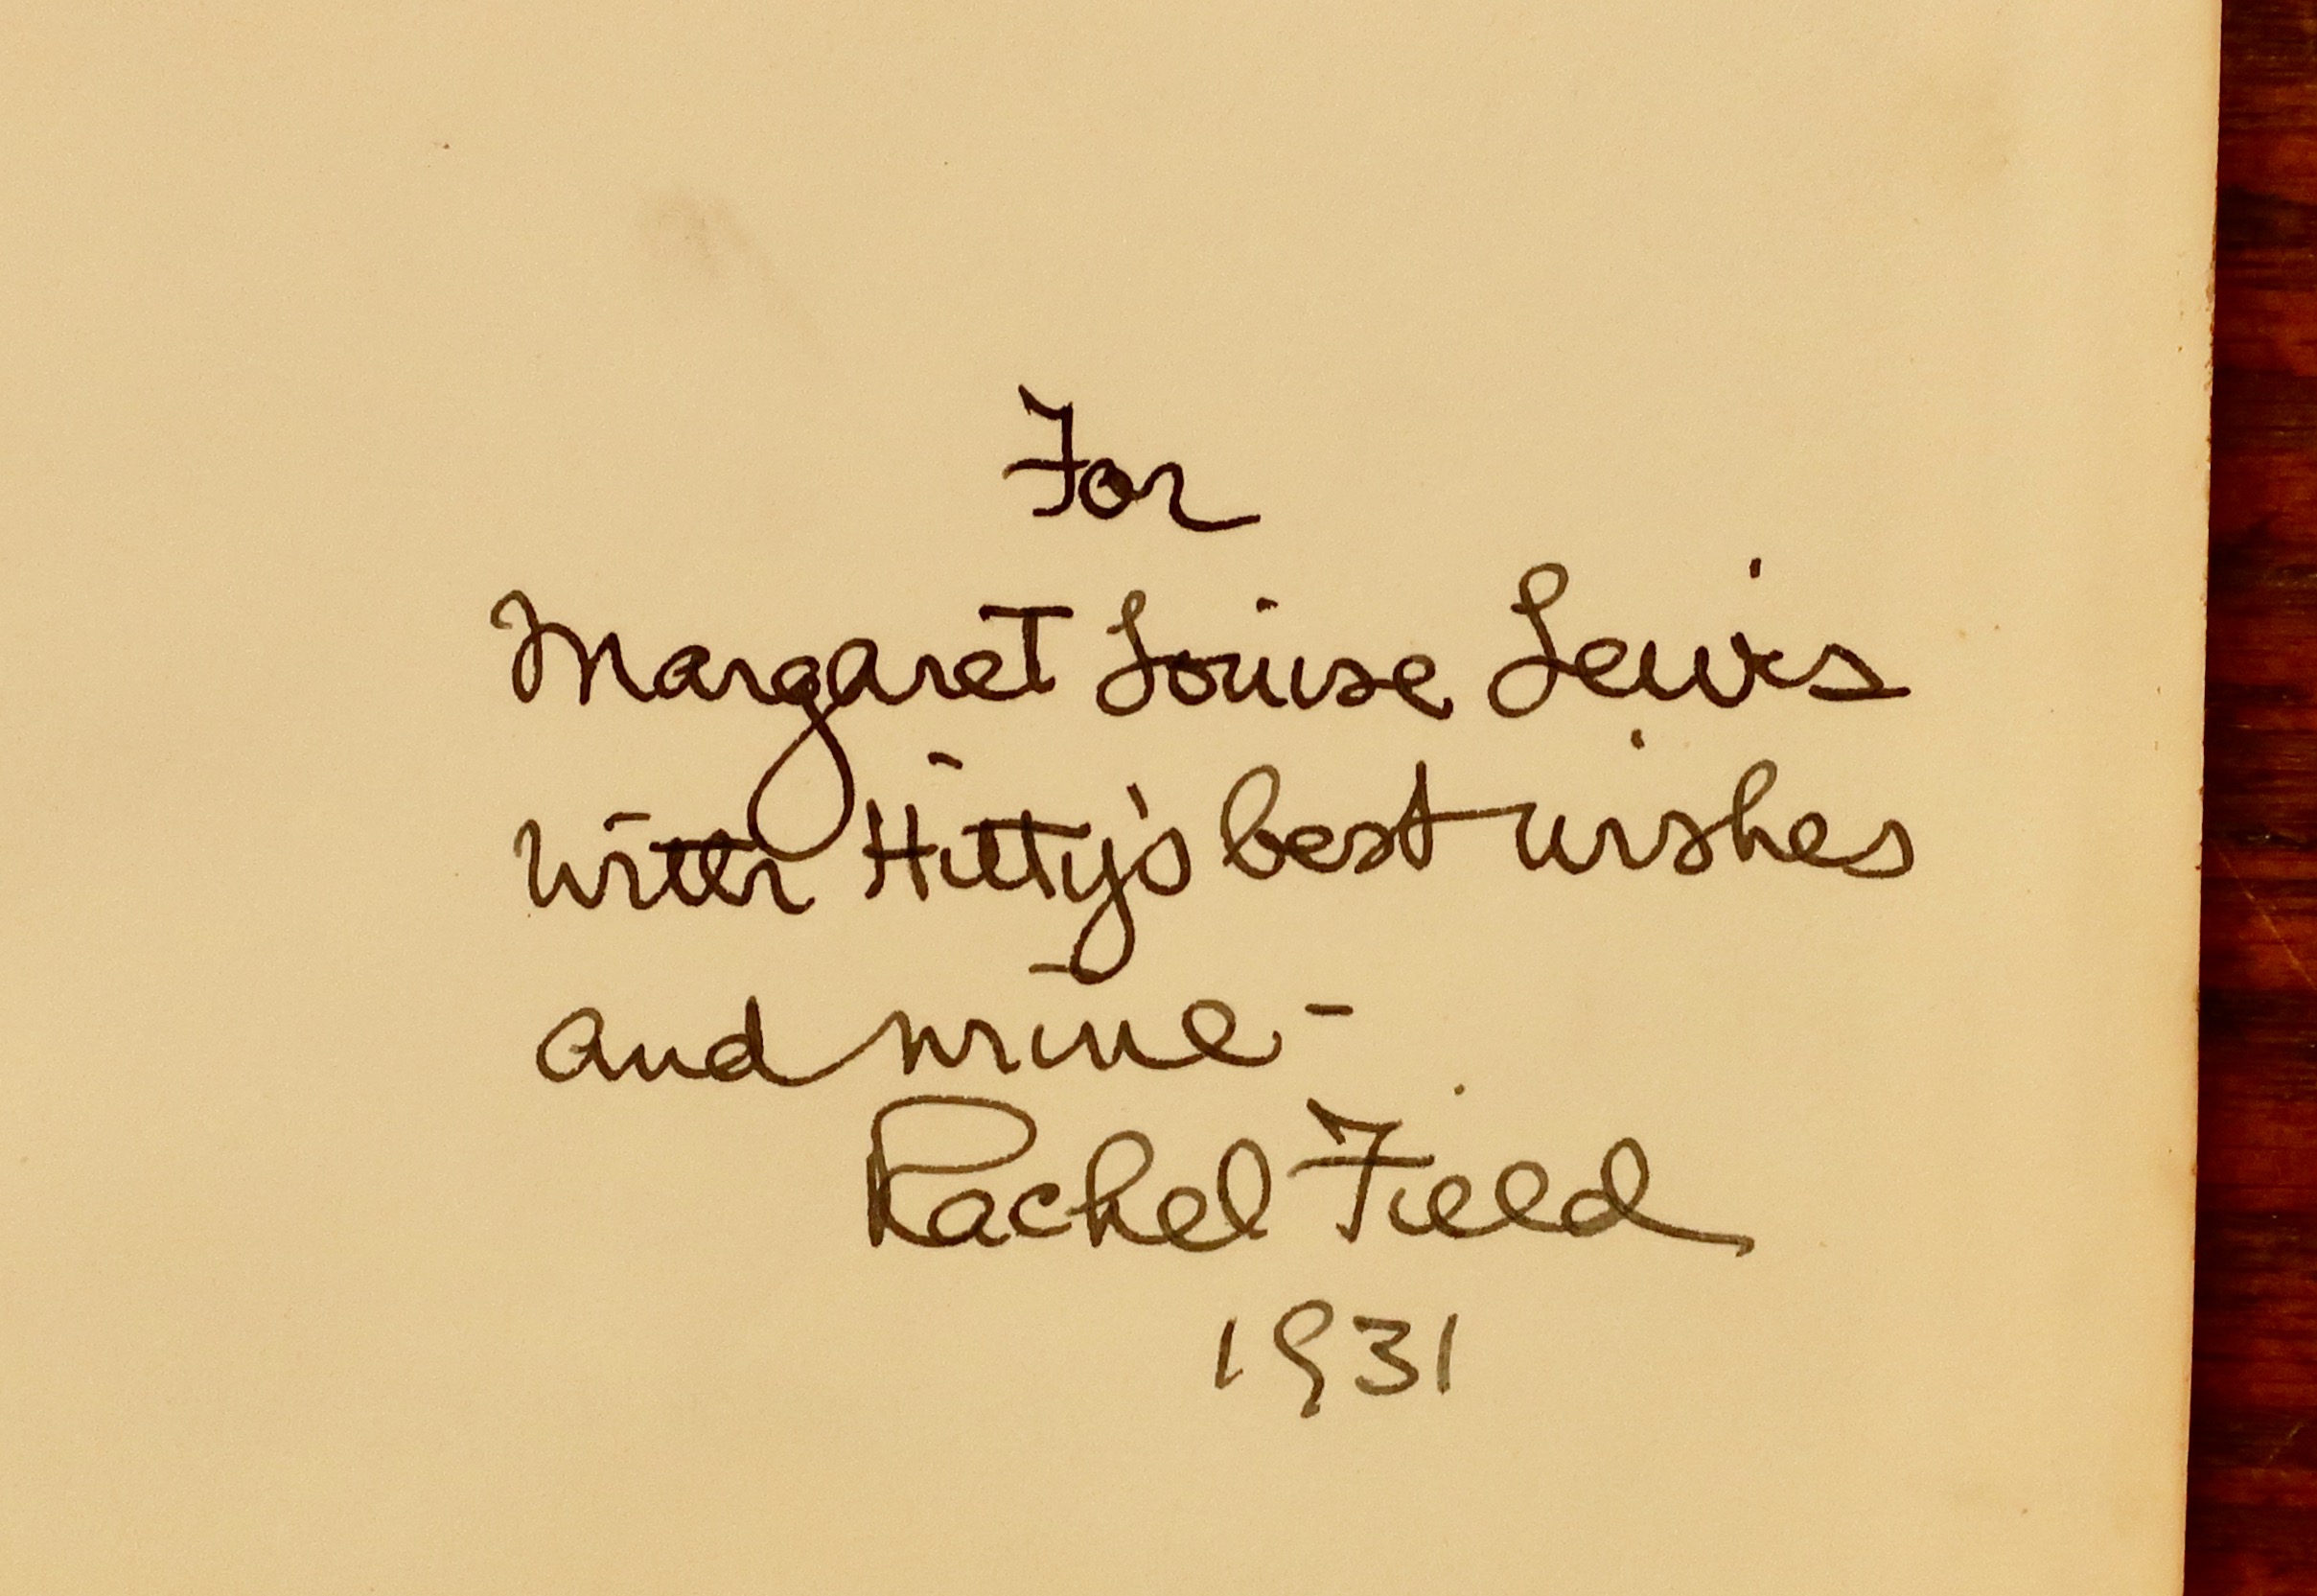 For
Margaret Louise Lewis
with Hitty's best wishes
and mine -
Rachel Field
1931